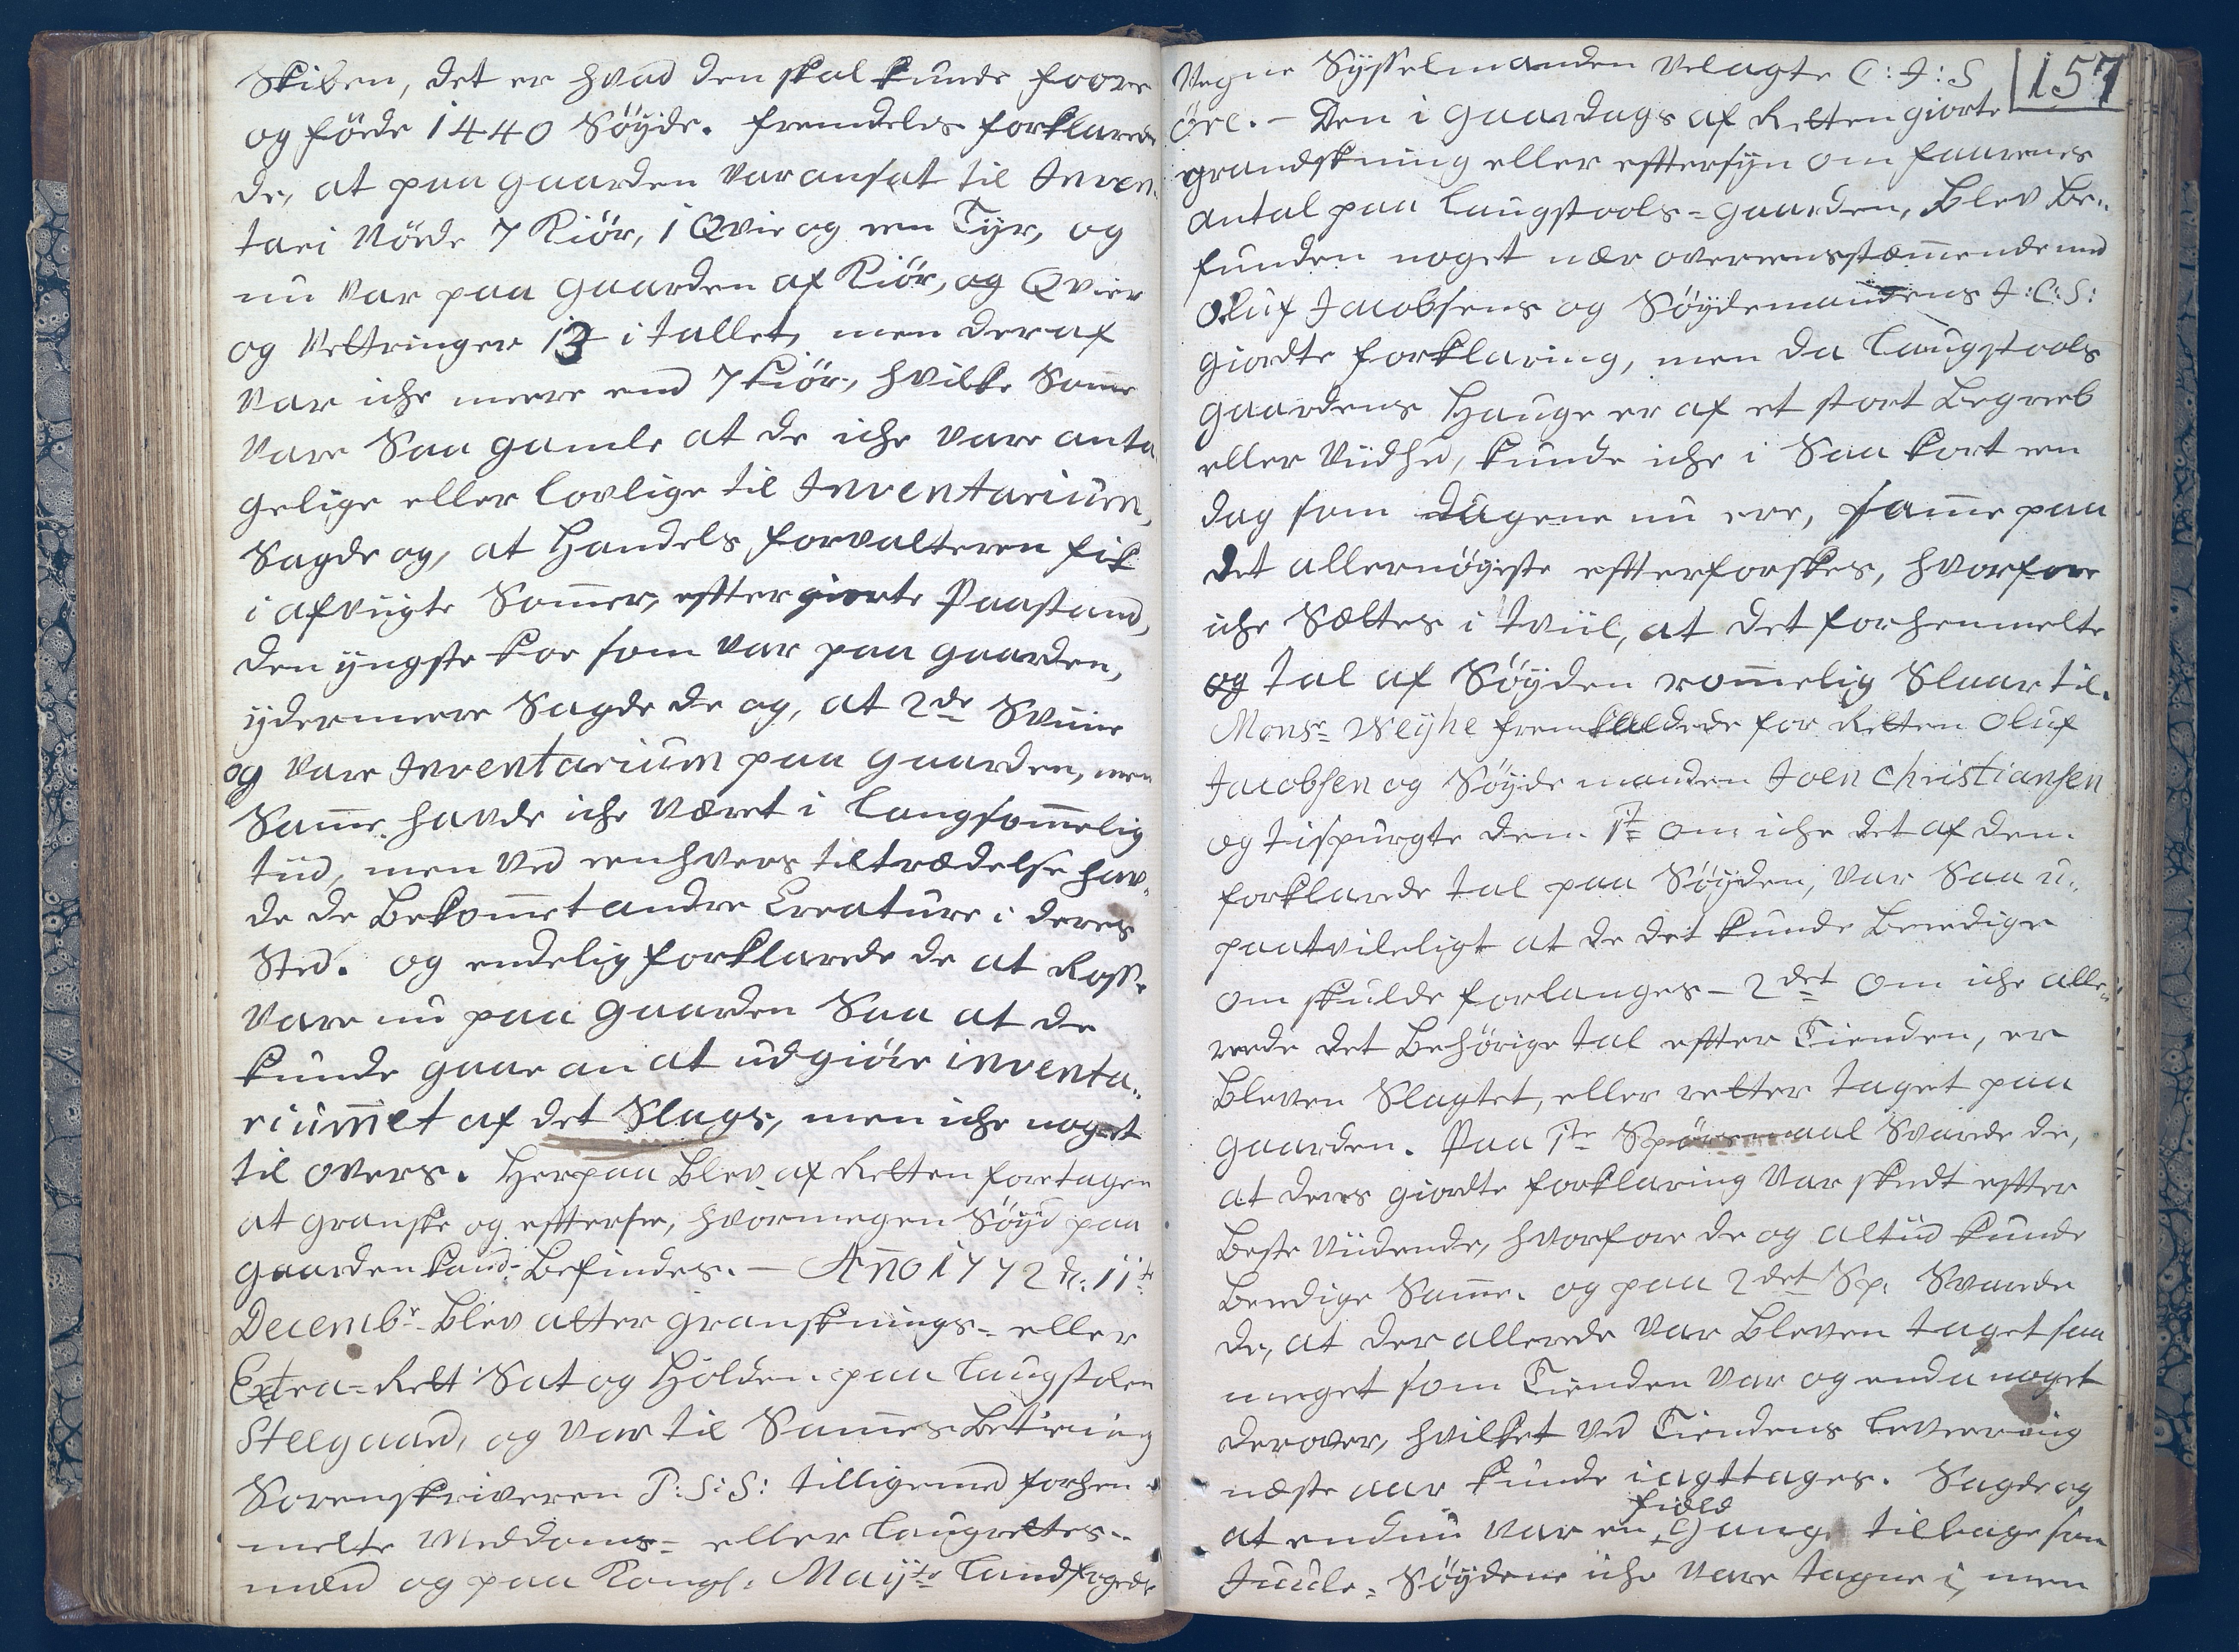 Skiben, det er hvad den skal kunde foore
og föde 1440 Söyde. fremdeles forklarede
de, at paa gaarden var ansat til Inven-
tari Nöede 7 Kiör, 1 Qvie og een Tÿr, og
nu var paa gaarden af Kiör, og Qvier
og Vettringer 13 i tallet, men deraf
var iche meere end 7 kiör, hvilke Samme
vare Saa gamle at de iche vare anta
gelige eller lovlige til Inventarium,
Sagde og, at Handels forvalteren fik
i afvigte Som̅er, effter giorte Paastand,
den ÿngste koe som var paa gaarden,
ÿdermeere Sagde de og, at 2de Sviine
og vare Inventarium paa gaarden, men
Sam̅e havde iche været i langsom̅elig
tiid, men ved eenhvers tiltrædelse hav-
de de Bekom̅et andre Creature i deres
Sted. og endelig forklarede de at Ross-
vare nu paa gaarden Saa at de
kunde gaae an at udgiöre inventa-
rium̅et af det Slags, men iche noget
til overs. Herpaa Blev af Retten foretagen
at granske og effterse, hvormegen Söyd paa
gaarden kand Befindes. — An̅o 1772 d: 11te
Decembr. Blev atter gransknings- eller
Extra-Rett Sat og Holden paa Laugstolen
Steegaard, og var til Sam̅es Betiening
Sorenskriveren P: S: S: tilligemed forhen
melte Meddoms- eller Laugrettes-
mænd og paa Kongl: Mayts Landfogeds
157
Vegne Sÿsselmanden Velagte C: J: S
Öre. — Den i gaardags af Retten giorte
grandskning eller efftersÿn om faarenes
antal paa Laugstools-gaarden, Blev Be-
funden noget nær overeensstæm̅ende med
Oluf Jacobsens og Söydemandens J: C: S:
giordte forklaring, men da Laugstools
gaardens Hauge er af et stort Begreeb
eller Viidhed, kunde iche i Saa kort een
dag som dagene nu ere, sam̅e paa
det allernöyeste effterforskes, hvorfore
iche Sættes i tviil, at det forhenmelte
og tal af Söyden rom̅elig Slaar til.
Monsr Weyhe fremkaldede for Retten Oluf
Jacobsen og Söyde manden Joen Christiansen
og tispurgte dem 1t om iche det af dem
forklarede tal paa Söyden, var Saa u-
paatvileligt at de det kunde Beedige
om skulde forlanges — 2det Om iche alle-
reede det Behörige tal effter Tienden, er
Bleven Slagtet, eller retter taget paa
gaarden. Paa 1te Spörsmaal Svarede de,
at deres giordte forklaring var skeedt effter
Beste Viidende, hvorfore de og altiid kunde
Beedige Sam̅e. og paa 2det Sp: Svarede
de, at der allerede var Bleven taget saa
meget som Tienden var og enda noget
derover, hvilket ved Tiendens Leveering
næste aar kunde iagttages. Sagde og
at endnu var en field Gang tilbage som
Juule-Söydene iche vare tagne i, men